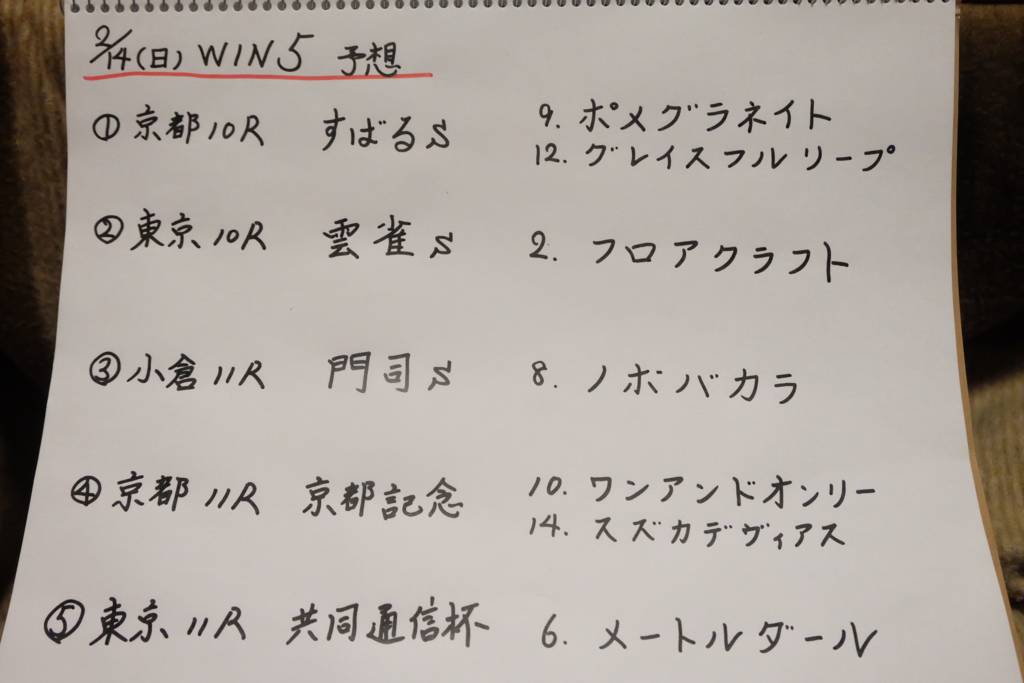 2/14(日) WIN5 予想
①京都10R すばるS 9. ポメグラネイト
12. グレイスフルリープ
②東京10R 雲雀S 2. フロアクラフト
③小倉11R 門司S 8. ノボバカラ
④京都11R 京都記念 10. ワンアンドオンリー
14. スズカデヴィアス
⑤東京11R 共同通信杯 6. メートルダール